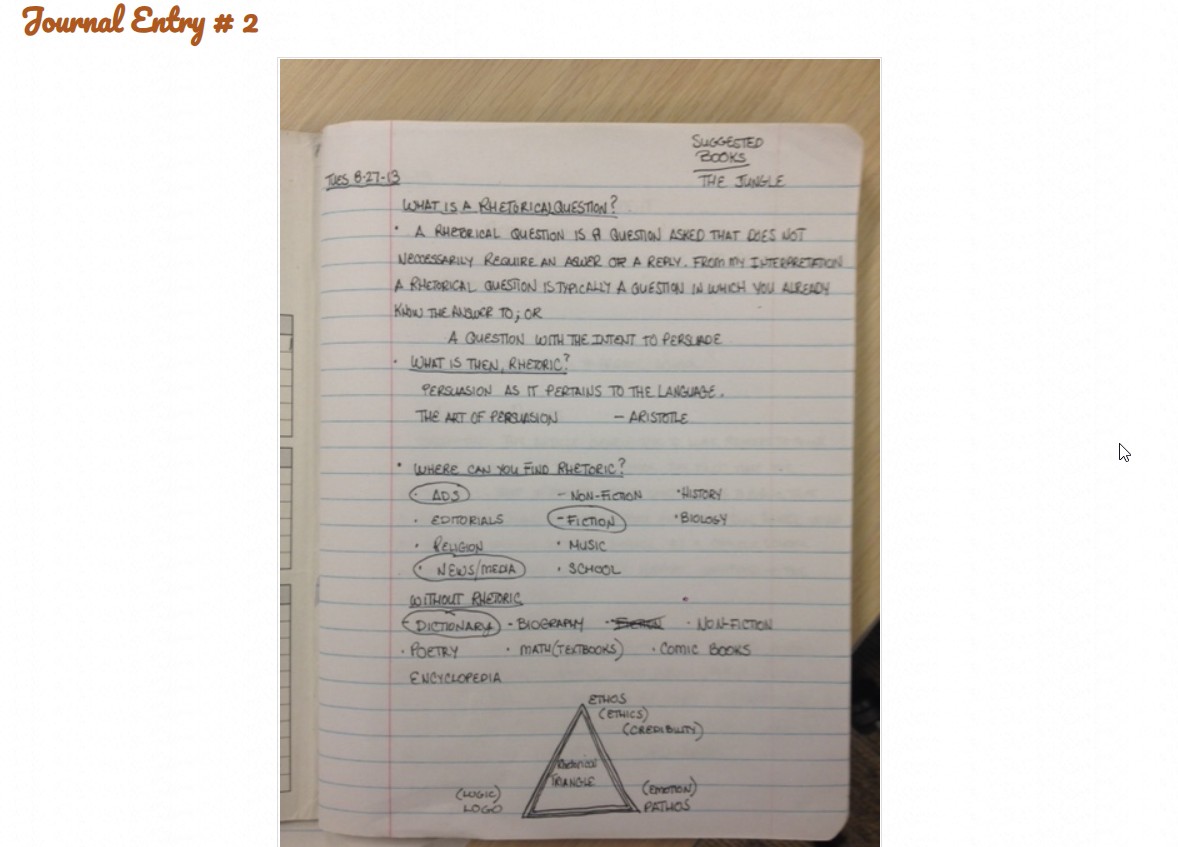 Journal Entry # 2
SUGGESTED
BOOKS
THE JUNGLE
TUES 8-27-13
WHAT IS A RHETORICAL QUESTION?
• A RHETORICAL QUESTION IS A QUESTION ASKED THAT DOES NOT
NECCESSARILY REQUIRE AN ASWER OR A REPLY. FROM MY INTERPRETATION
A RHETORICAL QUESTION IS TYPICALLY A QUESTION IN WHICH YOU ALREADY
KNOW THE ANSWER TO; OR
A QUESTION WITH THE INTENT TO PERSUADE
• WHAT IS THEN, RHETORIC?
PERSUASION AS IT PERTAINS TO THE LANGUAGE.
THE ART OF PERSUASION – ARISTOTLE
• WHERE CAN YOU FIND RHETORIC?
• ADS – NON-FICTION • HISTORY
• EDITORIALS – FICTION • BIOLOGY
• RELIGION • MUSIC
• NEWS/MEDIA • SCHOOL
WITHOUT RHETORIC
- DICTIONARY • BIOGRAPHY • FICTION • NON-FICTION
• POETRY • MATH (TEXTBOOKS) • COMIC BOOKS
ENCYCLOPEDIA
ETHOS
(ETHICS)
(CREDIBILITY)
Rhetorical
TRIANGLE
(LOGIC) (EMOTION)
LOGO PATHOS